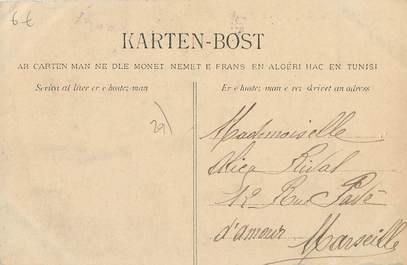 6€
KARTEN-BOST
AR CARTEN MAN NE DLE MONET NEMET E FRANS EN ALGÉRI HAC EN TUNISI
Scrivit al liser er c'hostez-man
Er c'hostez-man e vez skrivet an adress
29)
Mademoiselle
Alice Rival
12 Rue Pavé
d'amour
Marseille